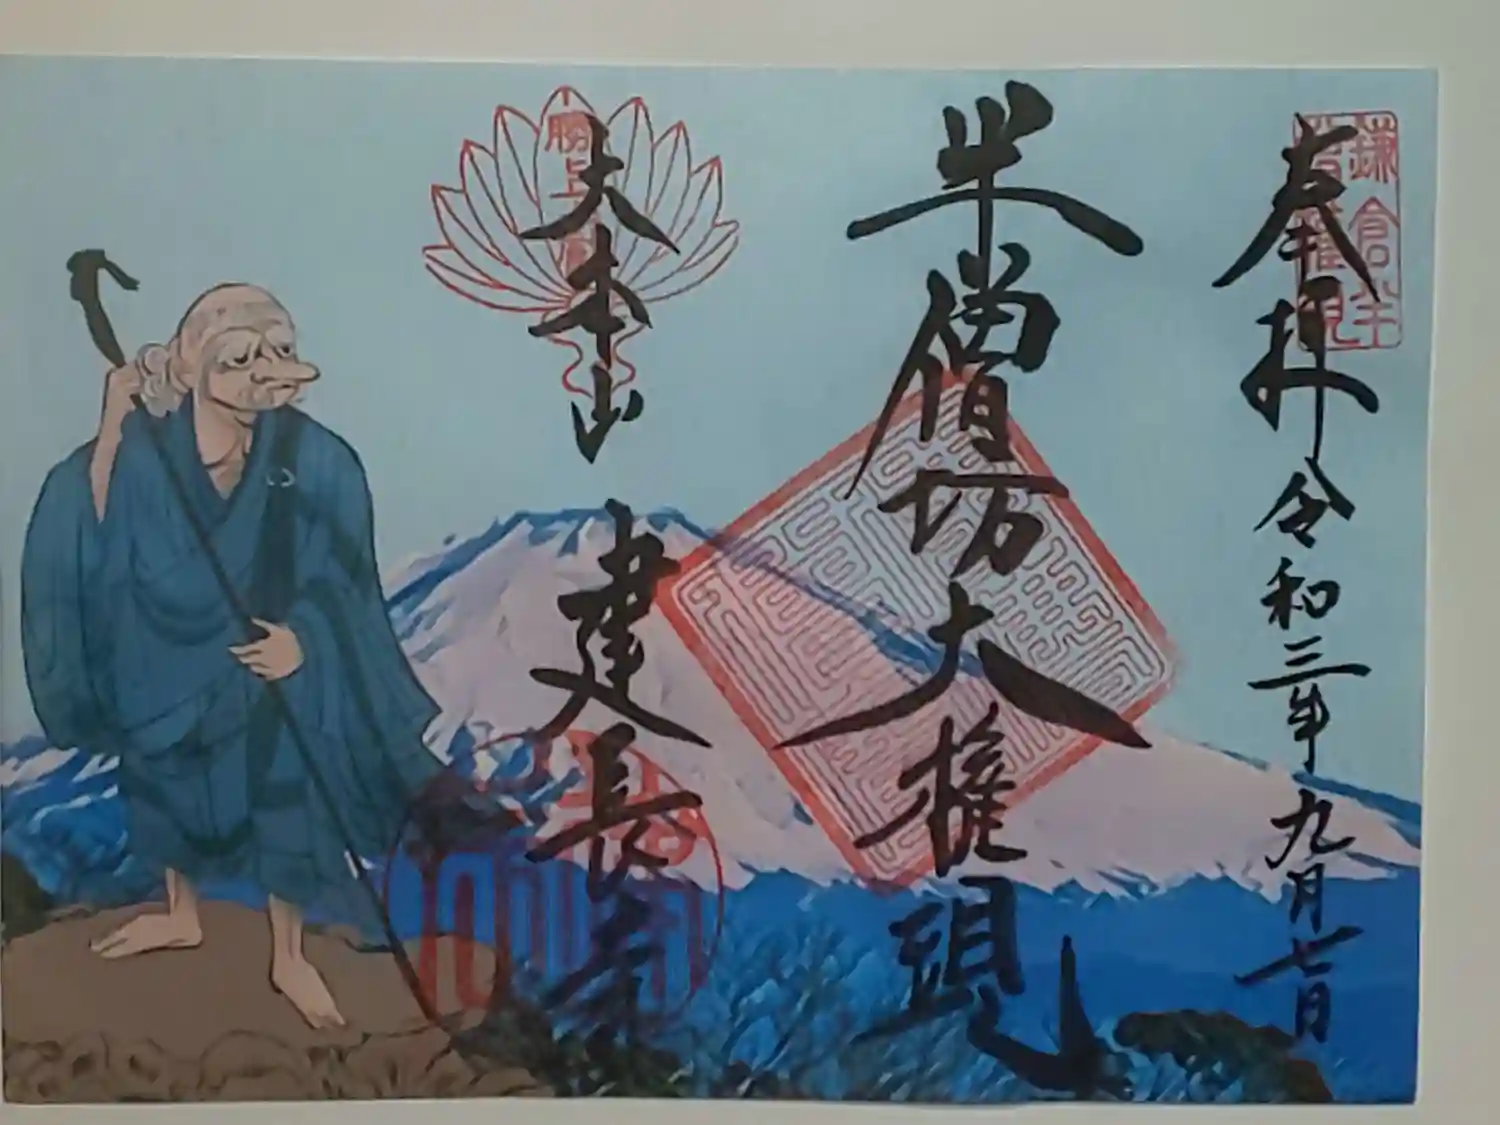 奉拝 令和三年九月七日
半僧坊大権現
大本山 建長寺
鎌倉半
勝上